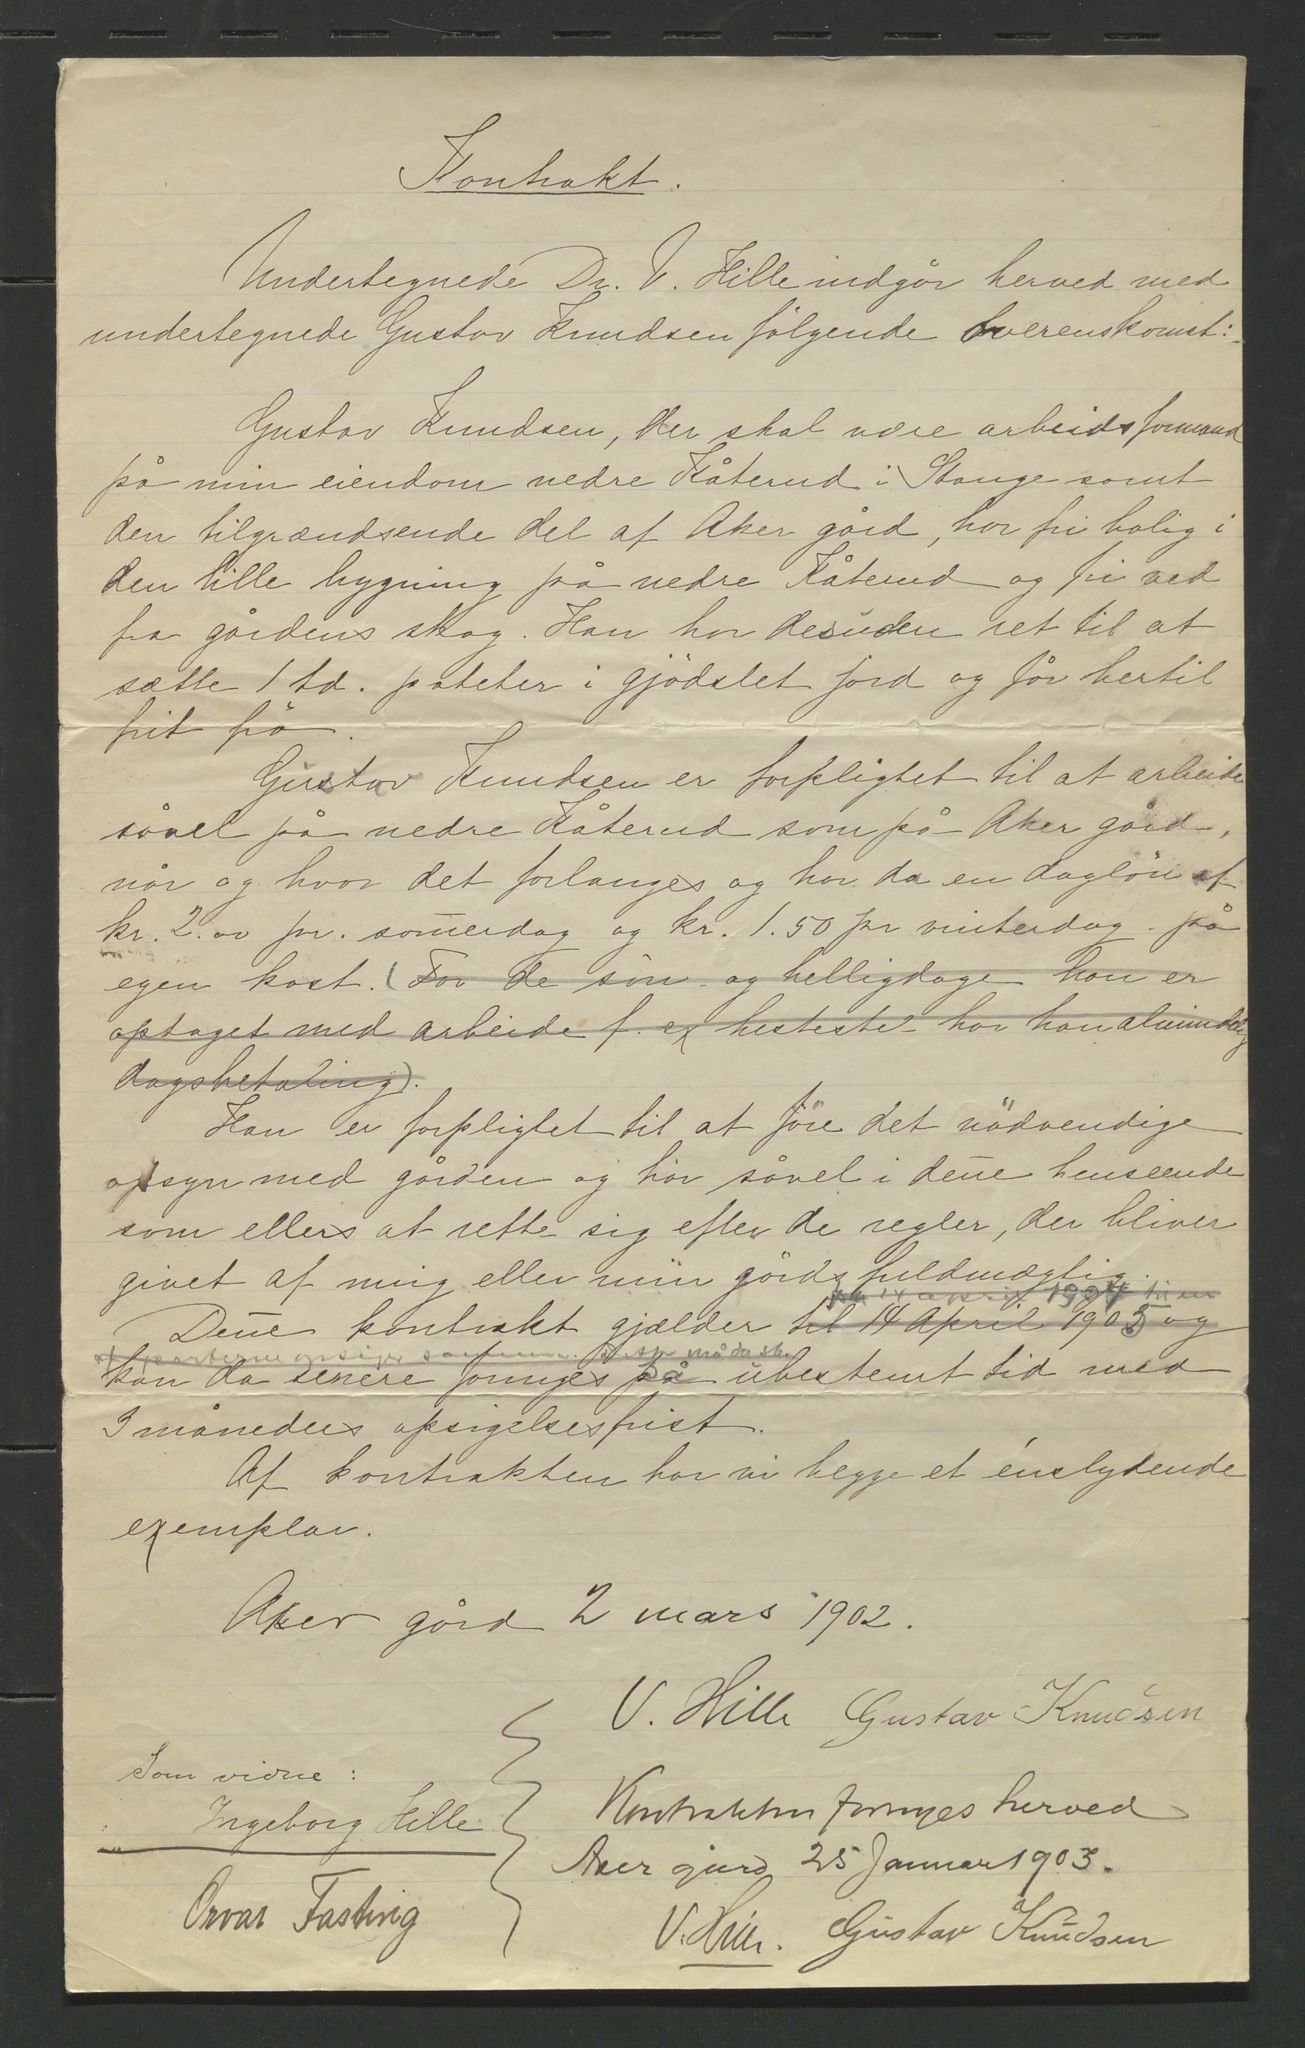 Kontrakt.
Undertegnede Dr. V. Hille indgår herved med
undertegnede Gustav Knudsen følgende overenskomst:
Gustav Knudsen, der skal være arbeidsformand
på min eiendom nedre Kåterud i Stange samt
den tilgrændsende del af Aker gård, har fri bolig i
den lille bygning på nedre Kåterud og fri ved
fra gårdens skog. Han har desuden ret til at
sætte 1 td. poteter i gjödslet jord og får hertil
frit frö.
Gustav Knudsen er forpligtet til at arbeide
såvel på nedre Kåterud som på Aker gård,
når og hvor det forlanges og har da en daglön af
kr. 2.00 pr. som̄erdag og kr. 1.50 pr vinterdag på
egen kost. (For de søn og helligdage han er
optaget med arbeide f. ex hestestel har han almindelig
dagsbetaling).
Han er forpligtet til at före det nödvendige
opsyn med gården og har såvel i den̄e henseende
som ellers at rette sig efter de regler, der bliver
givet af mig eller min gårdsfuldmægtig.
14 april 1904
Den̄e kontrakt gjælder til 14 April 1903 og
af parterne opsiges
kan da senere fornyes på ubestemt tid med
3 måneders opsigelsesfrist.
Af kontrakten har vi begge et énslydende
exemplar.
Aker gård 2 mars 1902.
V. Hille Gustav Knudsen
Som vidne:
Ingeborg Hille
Orvar Fasting
Kontrakten fornyes herved
Aker gård 25 Januar 1903.
V. Hille. Gustav Knudsen